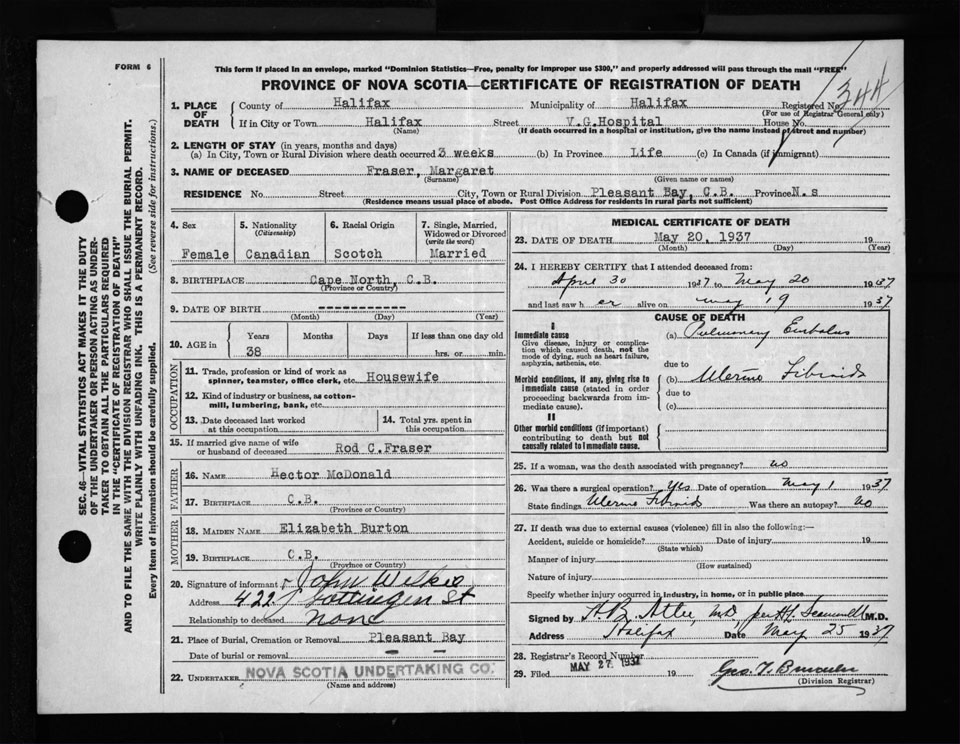 FORM 6
This form if placed in an envelope, marked "Dominion Statistics—Free, penalty for improper use $300," and properly addressed will pass through the mail "FREE"
PROVINCE OF NOVA SCOTIA—CERTIFICATE OF REGISTRATION OF DEATH
344
1. PLACE OF DEATH
County of Halifax Municipality of Halifax Registered No.
(For use of Registrar General only)
If in City or Town Halifax Street V.G.Hospital House No.
(Name) (If death occurred in a hospital or institution, give the name instead of street and number)
2. LENGTH OF STAY (in years, months and days)
(a) In City, Town or Rural Division where death occurred 3 weeks (b) In Province Life (c) In Canada (if immigrant)
3. NAME OF DECEASED Fraser, Margaret
(Surname) (Given name or names)
RESIDENCE No. Street City, Town or Rural Division Pleasant Bay, C.B. Province N.s
(Residence means usual place of abode. Post Office Address for residents in rural parts not sufficient)
4. Sex
Female
5. Nationality
(Citizenship)
Canadian
6. Racial Origin
Scotch
7. Single, Married, Widowed or Divorced
(write the word)
Married
8. BIRTHPLACE Cape North, C.B.
(Province or Country)
9. DATE OF BIRTH
(Month) (Day) (Year)
10. AGE in Years Months Days If less than one day old
38 hrs. or min.
OCCUPATION
11. Trade, profession or kind of work as
spinner, teamster, office clerk, etc. Housewife
12. Kind of industry or business, as cotton-
mill, lumbering, bank, etc.
13. Date deceased last worked
at this occupation
14. Total yrs. spent in
this occupation
15. If married give name of wife
or husband of deceased Rod C.Fraser
FATHER
16. NAME Hector McDonald
17. BIRTHPLACE C.B.
(Province or Country)
MOTHER
18. MAIDEN NAME Elizabeth Burton
19. BIRTHPLACE C.B.
(Province or Country)
20. Signature of informant John Wilkie
Address 422 Gottingen St
Relationship to deceased none
21. Place of Burial, Cremation or Removal Pleasant Bay
Date of burial or removal
22. UNDERTAKER NOVA SCOTIA UNDERTAKING CO.
(Name and address)
MEDICAL CERTIFICATE OF DEATH
23. DATE OF DEATH May 20, 1937 19
(Month) (Day) (Year)
24. I HEREBY CERTIFY that I attended deceased from:
April 30 1937 to May 20 1937
and last saw her alive on May 19 1937
CAUSE OF DEATH
I
Immediate cause
Give disease, injury or complica-
tion which caused death, not the
mode of dying, such as heart failure,
asphyxia, asthenia, etc.
(a) Pulmonary Embolus
due to
Morbid conditions, if any, giving rise to
immediate cause (stated in order
proceeding backwards from im-
mediate cause).
(b) Uterine Fibroids
due to
(c)
II
Other morbid conditions (if important)
contributing to death but not
causally related to immediate cause.
25. If a woman, was the death associated with pregnancy? no
26. Was there a surgical operation? Yes Date of operation May 1 1937
State findings Uterine Fibroids Was there an autopsy? No
27. If death was due to external causes (violence) fill in also the following:—
Accident, suicide or homicide? Date of injury 19
(State which)
Manner of injury
(How sustained)
Nature of injury
Specify whether injury occurred in industry, in home, or in public place
Signed by H.B. Atlee, M.D. per M.D.
Address Halifax Date May 25 1937
28. Registrar's Record Number
MAY 27 1937
29. Filed 19 Geo.
(Division Registrar)
SEC. 46—VITAL STATISTICS ACT MAKES IT THE DUTY
OF THE UNDERTAKER OR PERSON ACTING AS UNDER-
TAKER TO OBTAIN ALL THE PARTICULARS REQUIRED
IN THE "CERTIFICATE OF REGISTRATION OF DEATH"
AND TO FILE THE SAME WITH THE DIVISION REGISTRAR WHO SHALL ISSUE THE BURIAL PERMIT.
WRITE PLAINLY WITH UNFADING INK. THIS IS A PERMANENT RECORD.
Every item of information should be carefully supplied. (See reverse side for instructions.)